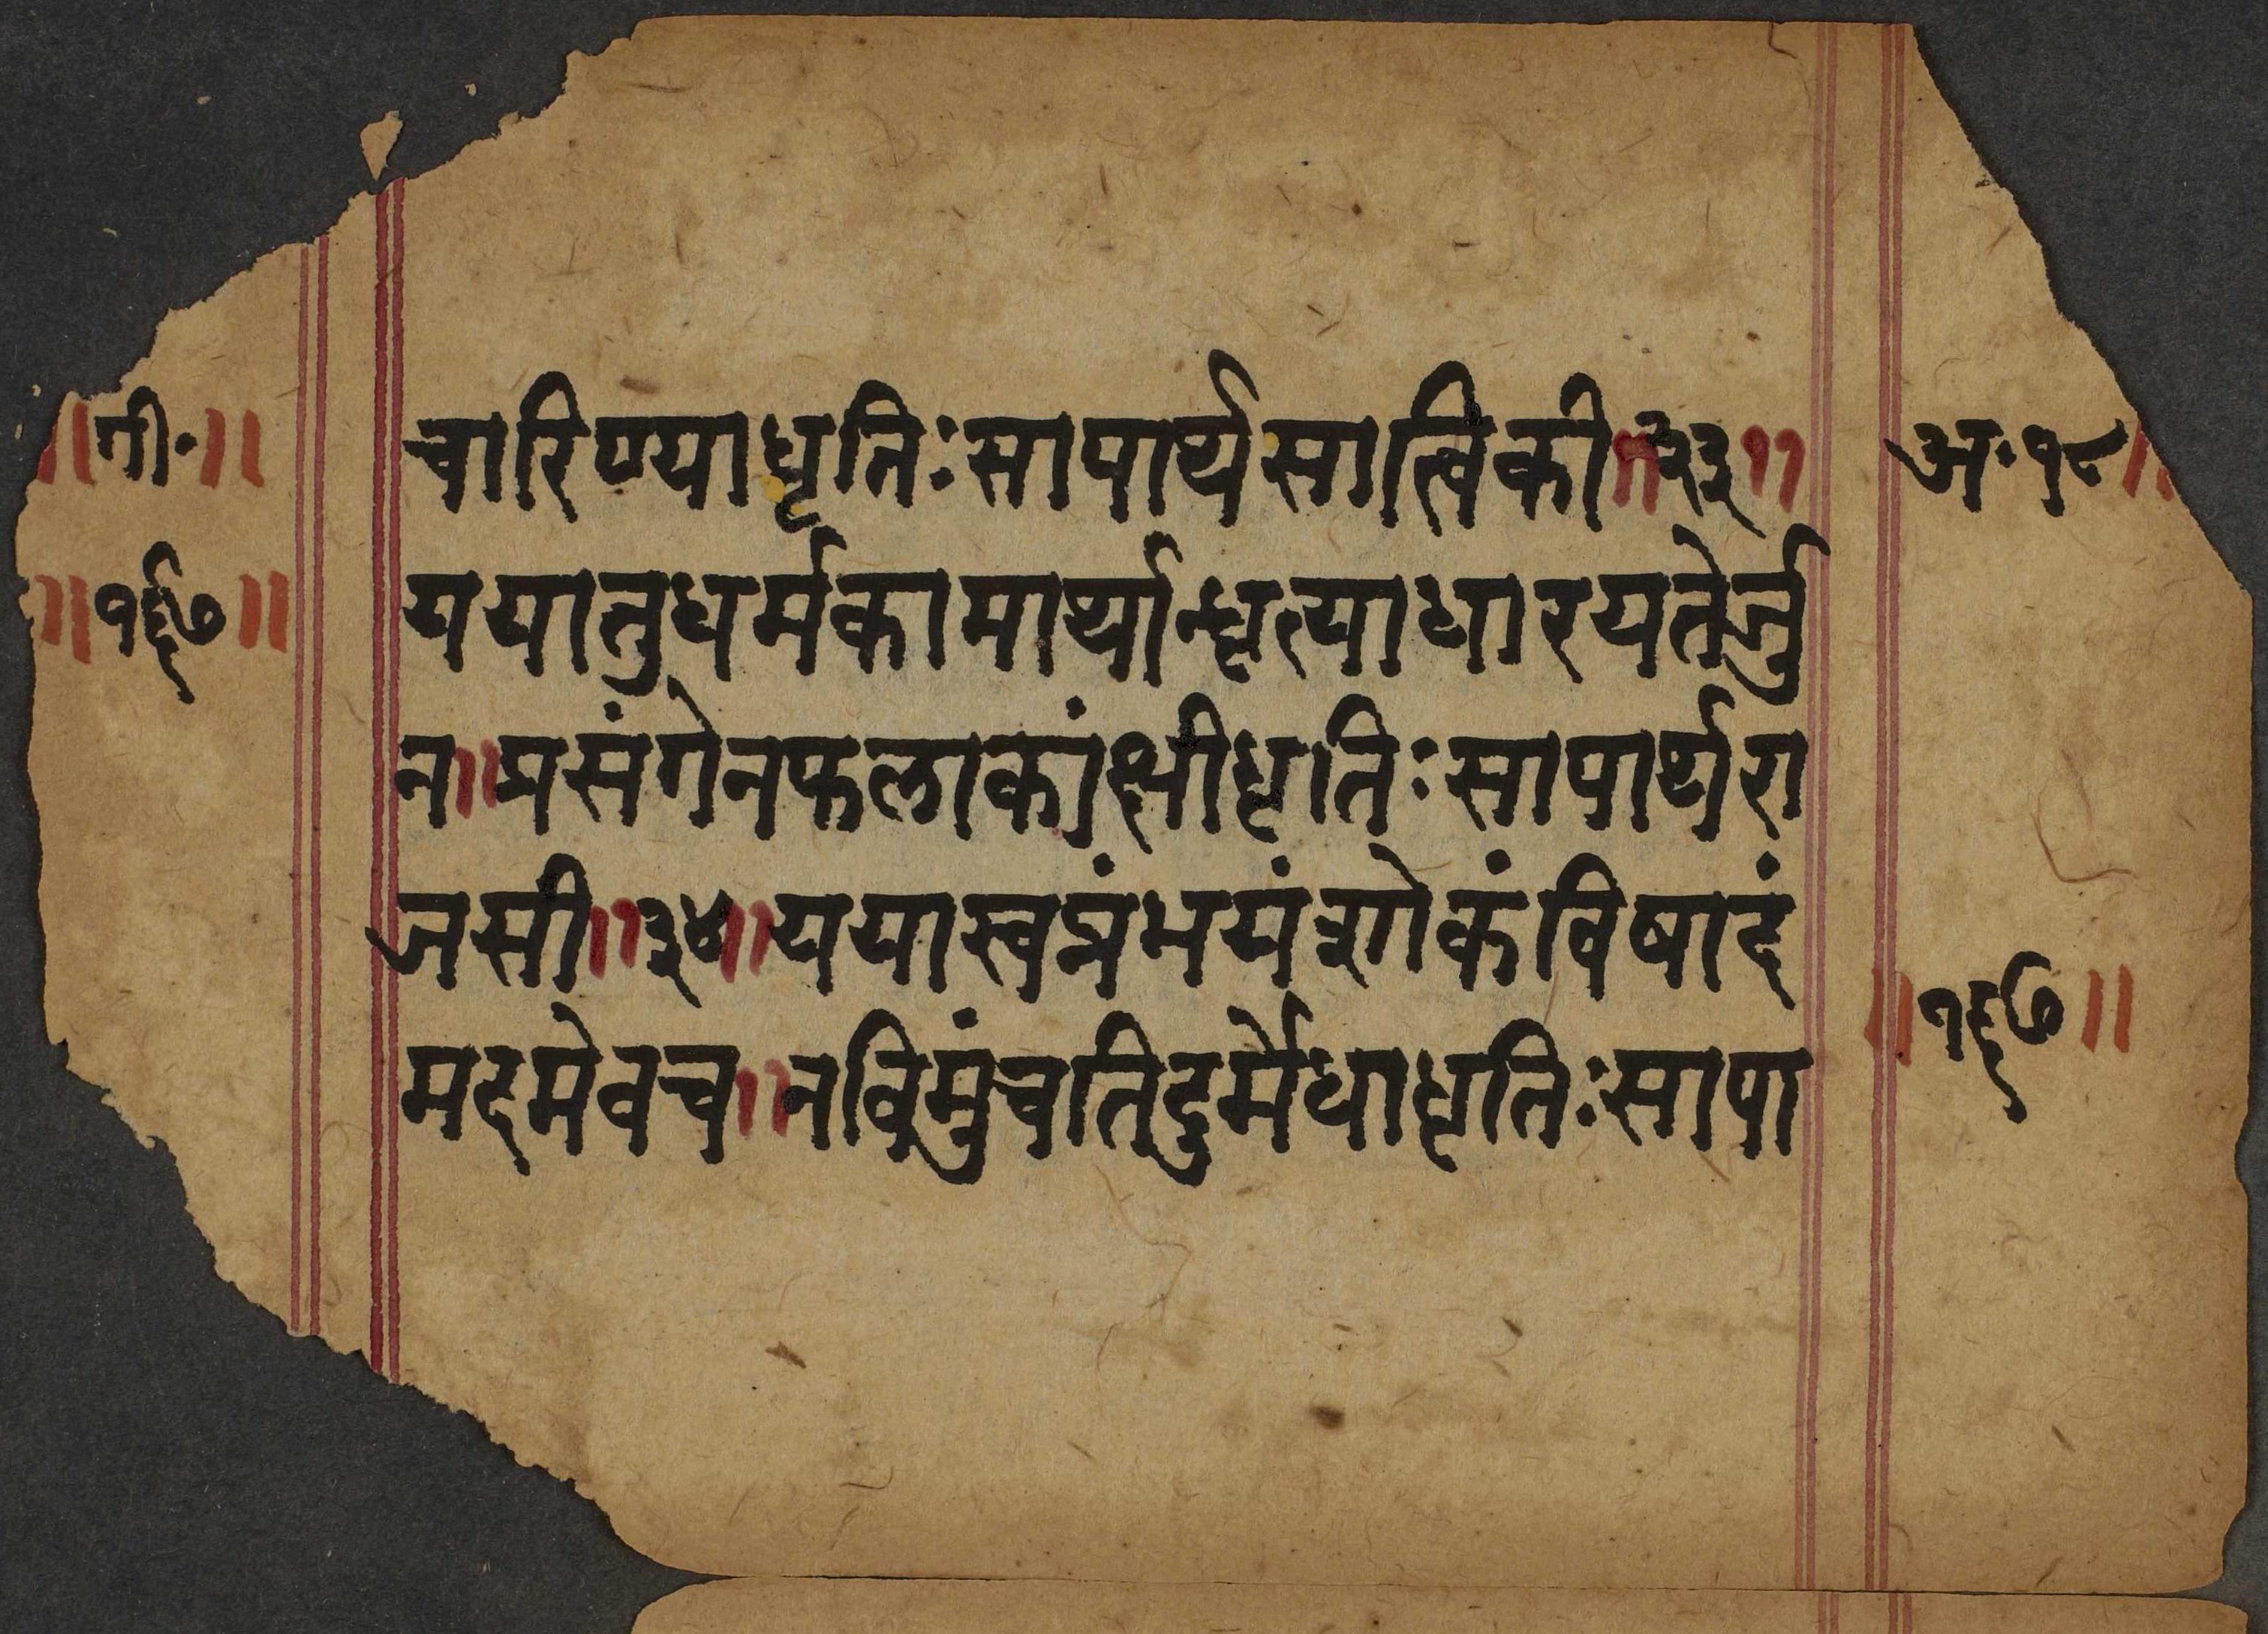 ॥गी॰॥ चारिण्याधृतिःसापार्थसात्विकी॥३३॥ अ॰१८॥
॥१६७॥ ययातुधर्मकामार्थान्धृत्याधारयतेर्जु
न॥प्रसंगेनफलाकांक्षीधृतिःसापार्थरा
जसी॥३४॥ययास्वप्नंभयंशोकंविषादं
मदमेवच॥नविमुंचतिदुर्मेधाधृतिःसापा
॥१६७॥